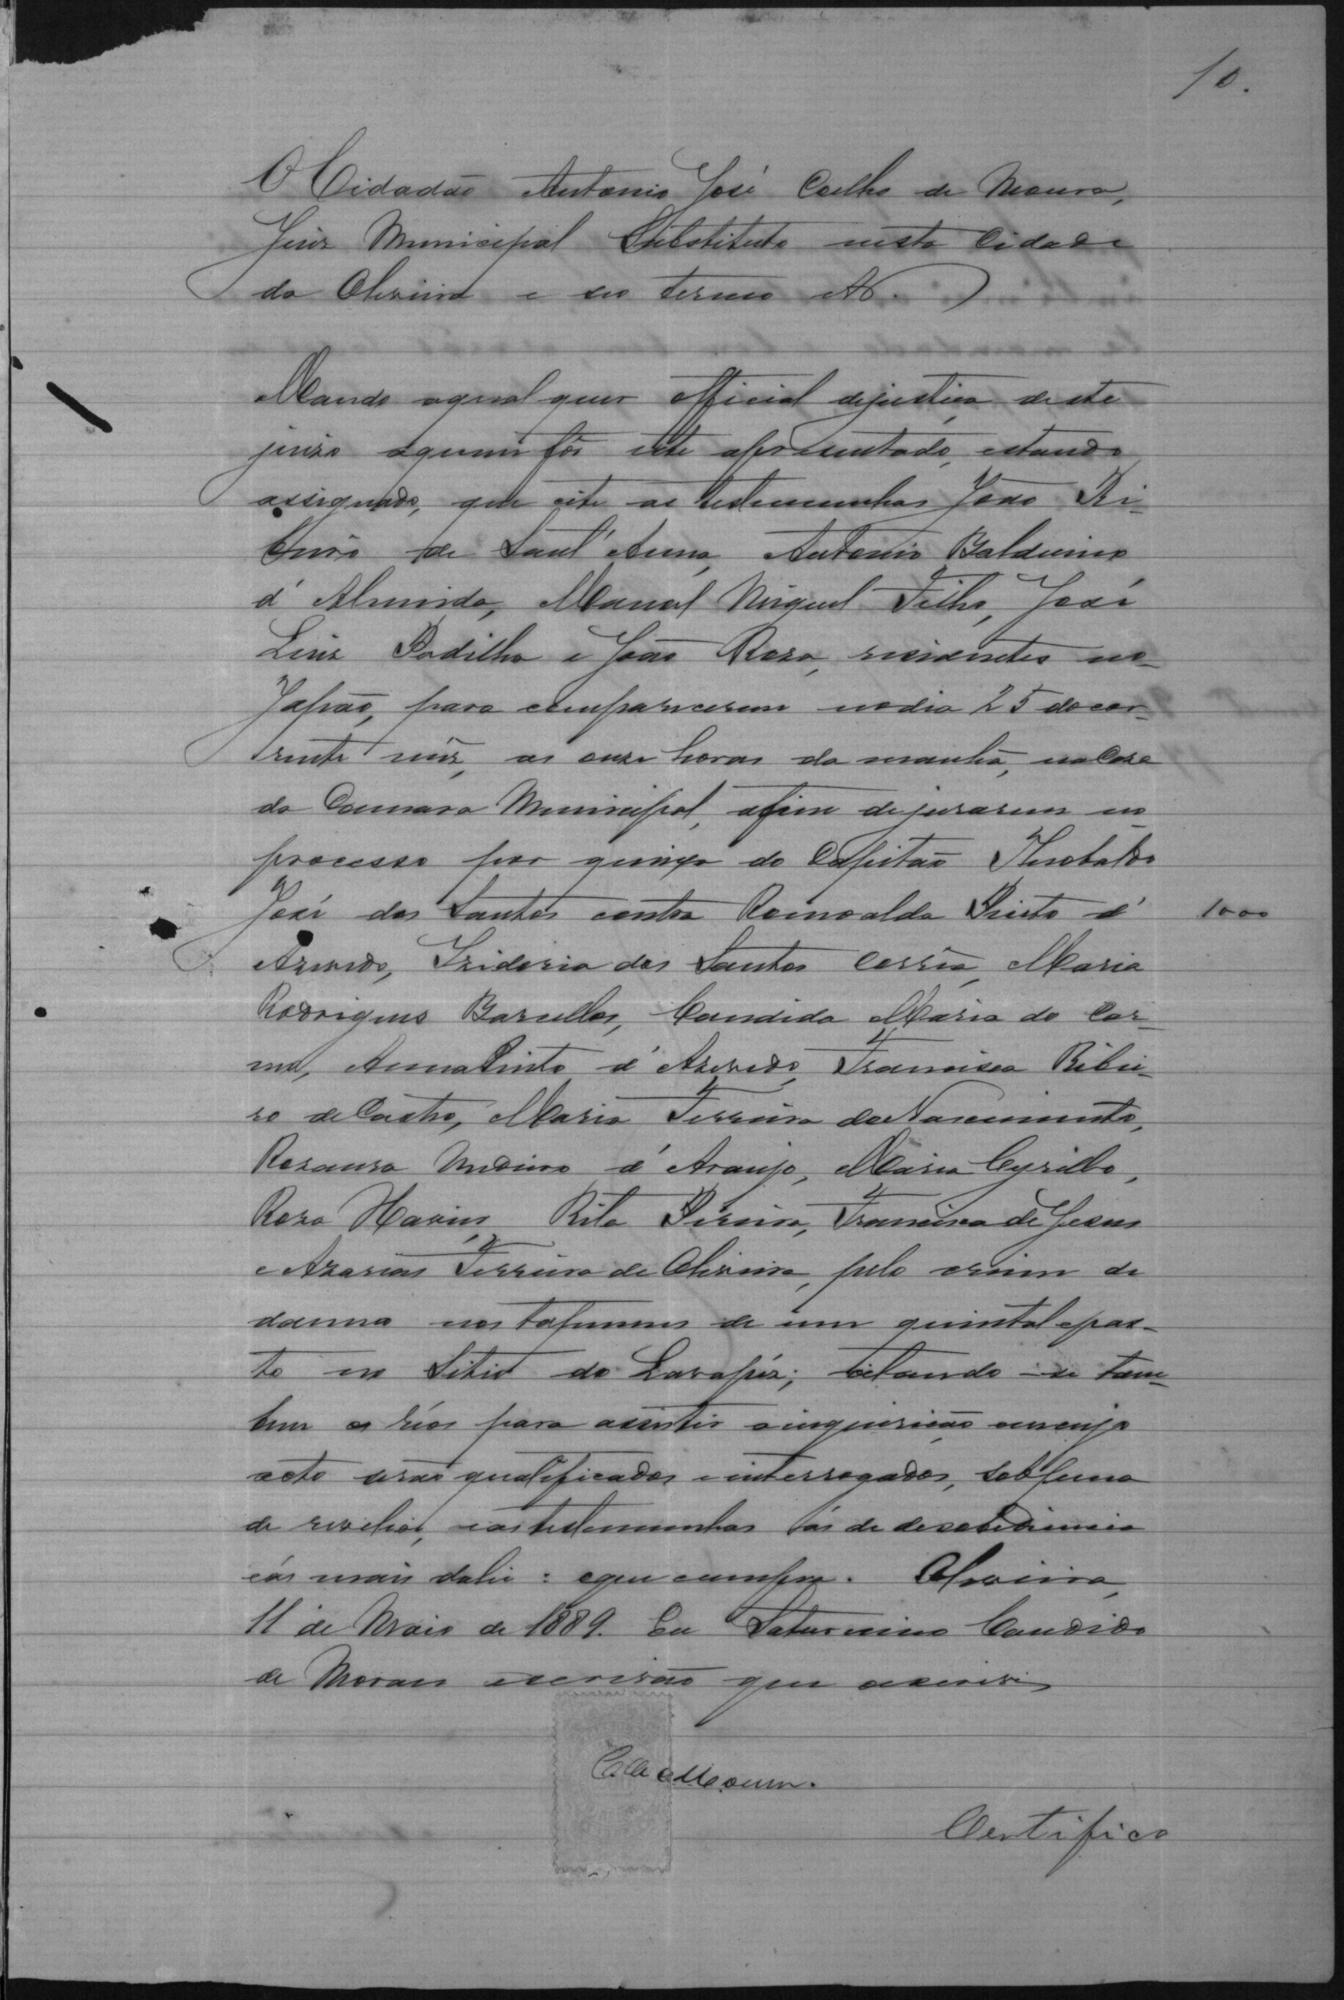 10.
O Cidadão Antonio José Coelho de Moura,
Juiz Municipal Substituto nesta Cidade
da Oliveira e seo termo &.
Mando aqualquer official dejustiça deste
juizo aquem fôr este apresentado, estando
assignado, que cite as testemunhas João Ri-
beiro de Sant'Anna, Antonio Balduino
d'Almeida, Manoel Miguel Filho, José
Luiz Padilha e João Roza, residentes no
Japão, para comparecerem nodia 25 docor-
rente mêz, as onze horas da manhã, na Casa
da Camara Municipal, afim dejurarem no
processo por queixa do Capitão Theobaldo
José dos Santos contra Romoalda Pinto d'
1000
Azevedo, Izidoria dos Santos Corrêa, Maria
Rodrigues Barcellos, Candida Maria do Car-
mo, Anna Pinto d'Azevedo, Francisca Ribei-
ro de Castro, Maria Ferreira do Nascimento,
Rosaura d'Araujo, Maria Cyrillo,
Roza Rita Pereira, Francisca de Jesus
e Azarias Ferreira de Oliveira, pelo crime de
damno nos tapumes de um quintal epas-
to no Sitio do Lavapés; citando-se tam-
bem os réos para assistir ainquirição emcujo
acto serão qualificados e interrogados, sobpena
de revelia, e as testemunhas ás de desobediencia
e ás mais dalei: eque cumpra. Oliveira,
11 de Maio de 1889. Eu Saturnino Candido
de Moraes escrivão que escrevi
Coelho Moura.
Certifico